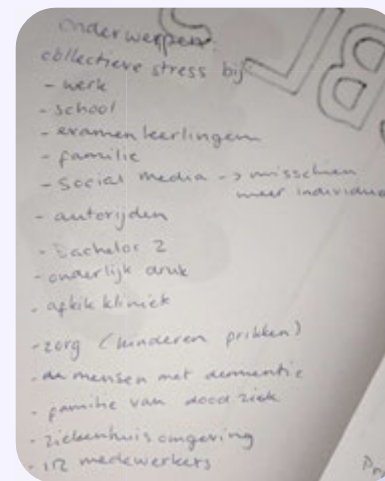 onderwerpen:
collectieve stress bij
- werk
- school
- examenleerlingen
- familie
- social media -> misschien
meer individu
- autorijden
- bachelor 2
- onderlijk druk
- afkik kliniek
- zorg (kinderen prikken)
- mensen met dementie
- familie van dood ziek
- ziekenhuis omgeving
- medewerkers